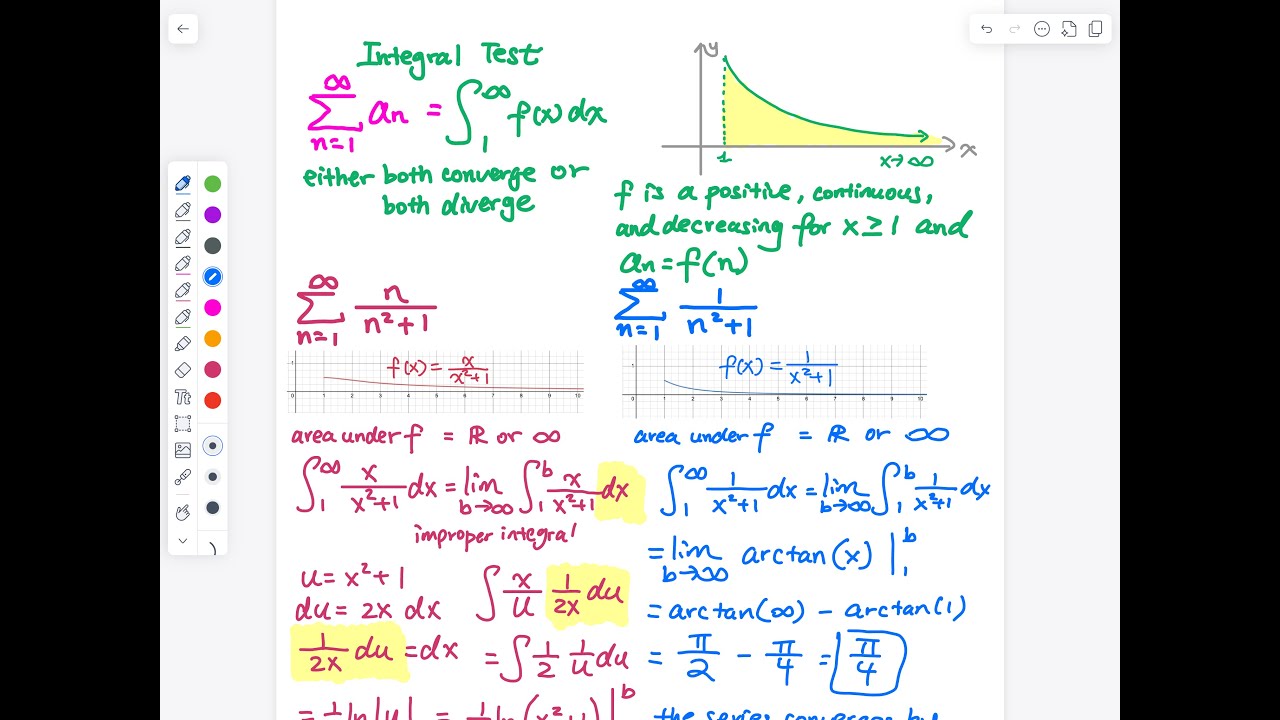 Integral Test
∞
∑ an = ∫₁^∞ f(x) dx
n=1
either both converge or
both diverge
y
1
x→∞
x
f is a positive, continuous,
and decreasing for x ≥ 1 and
an = f(n)
∞
∑ n/(n²+1)
n=1
1
f(x) = x/(x²+1)
0 1 2 3 4 5 6 7 8 9 10
area under f = ℝ or ∞
∫₁^∞ x/(x²+1) dx = lim b→∞ ∫₁^b x/(x²+1) dx
improper integral
u = x²+1
du = 2x dx
1/2x du = dx
∫ x/u 1/2x du
= ∫ 1/2 1/u du
∞
∑ 1/(n²+1)
n=1
1
f(x) = 1/(x²+1)
0 1 2 3 4 5 6 7 8 9 10
area under f = ℝ or ∞
∫₁^∞ 1/(x²+1) dx = lim b→∞ ∫₁^b 1/(x²+1) dx
= lim b→∞ arctan(x) |₁^b
= arctan(∞) − arctan(1)
= π/2 − π/4 = π/4
the series converges by
Tt